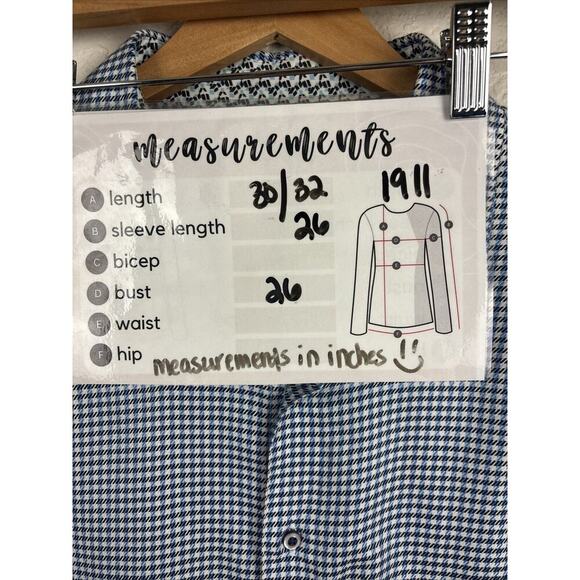 measurements
A length 30/32 1911
B sleeve length 26
C bicep
D bust 26
E waist
F hip measurements in inches